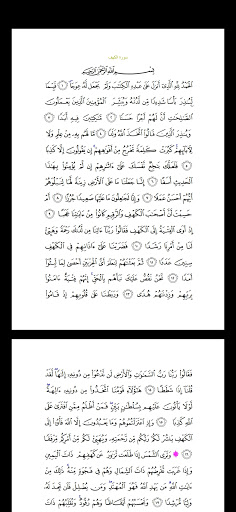 سورة الكهف
بِسْمِ ٱللَّهِ ٱلرَّحْمَٰنِ ٱلرَّحِيمِ
ٱلْحَمْدُ لِلَّهِ ٱلَّذِىٓ أَنزَلَ عَلَىٰ عَبْدِهِ ٱلْكِتَٰبَ وَلَمْ يَجْعَل لَّهُۥ عِوَجَا ﴿١﴾ قَيِّمًا
لِّيُنذِرَ بَأْسًا شَدِيدًا مِّن لَّدُنْهُ وَيُبَشِّرَ ٱلْمُؤْمِنِينَ ٱلَّذِينَ يَعْمَلُونَ
ٱلصَّٰلِحَٰتِ أَنَّ لَهُمْ أَجْرًا حَسَنًا ﴿٢﴾ مَّٰكِثِينَ فِيهِ أَبَدًا ﴿٣﴾
وَيُنذِرَ ٱلَّذِينَ قَالُوا۟ ٱتَّخَذَ ٱللَّهُ وَلَدًا ﴿٤﴾ مَّا لَهُم بِهِۦ مِنْ عِلْمٍ وَلَا
لِءَابَآئِهِمْ كَبُرَتْ كَلِمَةً تَخْرُجُ مِنْ أَفْوَٰهِهِمْ إِن يَقُولُونَ إِلَّا كَذِبًا
﴿٥﴾ فَلَعَلَّكَ بَٰخِعٌ نَّفْسَكَ عَلَىٰٓ ءَاثَٰرِهِمْ إِن لَّمْ يُؤْمِنُوا۟ بِهَٰذَا
ٱلْحَدِيثِ أَسَفًا ﴿٦﴾ إِنَّا جَعَلْنَا مَا عَلَى ٱلْأَرْضِ زِينَةً لَّهَا لِنَبْلُوَهُمْ
أَيُّهُمْ أَحْسَنُ عَمَلًا ﴿٧﴾ وَإِنَّا لَجَٰعِلُونَ مَا عَلَيْهَا صَعِيدًا جُرُزًا ﴿٨﴾ أَمْ
حَسِبْتَ أَنَّ أَصْحَٰبَ ٱلْكَهْفِ وَٱلرَّقِيمِ كَانُوا۟ مِنْ ءَايَٰتِنَا عَجَبًا
﴿٩﴾ إِذْ أَوَى ٱلْفِتْيَةُ إِلَى ٱلْكَهْفِ فَقَالُوا۟ رَبَّنَآ ءَاتِنَا مِن لَّدُنكَ رَحْمَةً وَهَيِّئْ
لَنَا مِنْ أَمْرِنَا رَشَدًا ﴿١٠﴾ فَضَرَبْنَا عَلَىٰٓ ءَاذَانِهِمْ فِى ٱلْكَهْفِ
سِنِينَ عَدَدًا ﴿١١﴾ ثُمَّ بَعَثْنَٰهُمْ لِنَعْلَمَ أَىُّ ٱلْحِزْبَيْنِ أَحْصَىٰ لِمَا لَبِثُوٓا۟
أَمَدًا ﴿١٢﴾ نَّحْنُ نَقُصُّ عَلَيْكَ نَبَأَهُم بِٱلْحَقِّ إِنَّهُمْ فِتْيَةٌ ءَامَنُوا۟
بِرَبِّهِمْ وَزِدْنَٰهُمْ هُدًى ﴿١٣﴾ وَرَبَطْنَا عَلَىٰ قُلُوبِهِمْ إِذْ قَامُوا۟
فَقَالُوا۟ رَبُّنَا رَبُّ ٱلسَّمَٰوَٰتِ وَٱلْأَرْضِ لَن نَّدْعُوَا۟ مِن دُونِهِۦٓ إِلَٰهًا لَّقَدْ
قُلْنَآ إِذًا شَطَطًا ﴿١٤﴾ هَٰٓؤُلَآءِ قَوْمُنَا ٱتَّخَذُوا۟ مِن دُونِهِۦٓ ءَالِهَةً
لَّوْلَا يَأْتُونَ عَلَيْهِم بِسُلْطَٰنٍۭ بَيِّنٍ فَمَنْ أَظْلَمُ مِمَّنِ ٱفْتَرَىٰ عَلَى
ٱللَّهِ كَذِبًا ﴿١٥﴾ وَإِذِ ٱعْتَزَلْتُمُوهُمْ وَمَا يَعْبُدُونَ إِلَّا ٱللَّهَ فَأْوُۥٓا۟ إِلَى
ٱلْكَهْفِ يَنشُرْ لَكُمْ رَبُّكُم مِّن رَّحْمَتِهِۦ وَيُهَيِّئْ لَكُم مِّنْ أَمْرِكُم مِّرْفَقًا
﴿١٦﴾ وَتَرَى ٱلشَّمْسَ إِذَا طَلَعَت تَّزَٰوَرُ عَن كَهْفِهِمْ ذَاتَ ٱلْيَمِينِ
وَإِذَا غَرَبَت تَّقْرِضُهُمْ ذَاتَ ٱلشِّمَالِ وَهُمْ فِى فَجْوَةٍ مِّنْهُ ذَٰلِكَ مِنْ
ءَايَٰتِ ٱللَّهِ مَن يَهْدِ ٱللَّهُ فَهُوَ ٱلْمُهْتَدِ وَمَن يُضْلِلْ فَلَن تَجِدَ لَهُۥ
وَلِيًّا مُّرْشِدًا ﴿١٧﴾ وَتَحْسَبُهُمْ أَيْقَاظًا وَهُمْ رُقُودٌ وَنُقَلِّبُهُمْ ذَاتَ